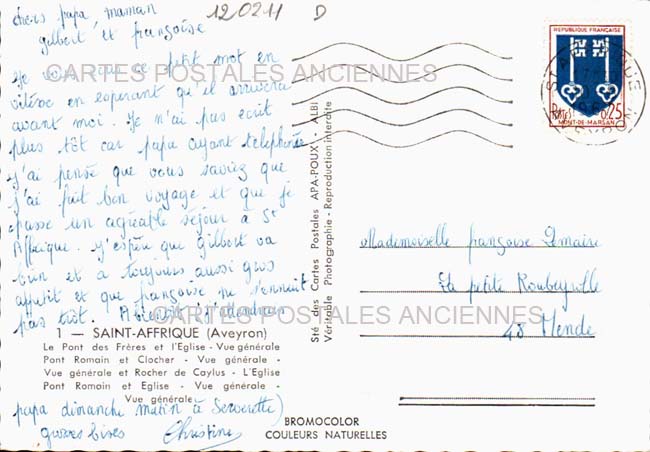 120211 D
chers papa, maman
gilbert et françoise
Je vous envoie ce petit mot en
vitesse en esperant qu'il arrivera
avant moi. Je n'ai pas ecrit
plus tôt car papa ayant telephoné
j'ai pensé que vous saviez que
j'ai fait bon voyage et que je
passe un agréable séjour à St
Affrique. J'espère que gilbert va
bien et a toujours aussi gros
appetit et que françoise ne s'ennuit
pas trop. A bientôt (j'attendrais
papa dimanche matin à Serverette)
grosses bises Christine
CARTES POSTALES ANCIENNES
CARTES POSTALES ANCIENNES
1 — SAINT-AFFRIQUE (Aveyron)
Le Pont des Frères et l'Eglise - Vue générale
Pont Romain et Clocher - Vue générale -
Vue générale et Rocher de Caylus - L'Eglise
Pont Romain et Eglise - Vue générale -
Vue générale -
BROMOCOLOR
COULEURS NATURELLES
Sté des Cartes Postales APA-POUX - ALBI
Véritable Photographie - Reproduction interdite
REPUBLIQUE FRANÇAISE
Postes 0,25
MONT-DE-MARSAN
Mademoiselle françoise
La petite Roubeyrolle
48 Mende